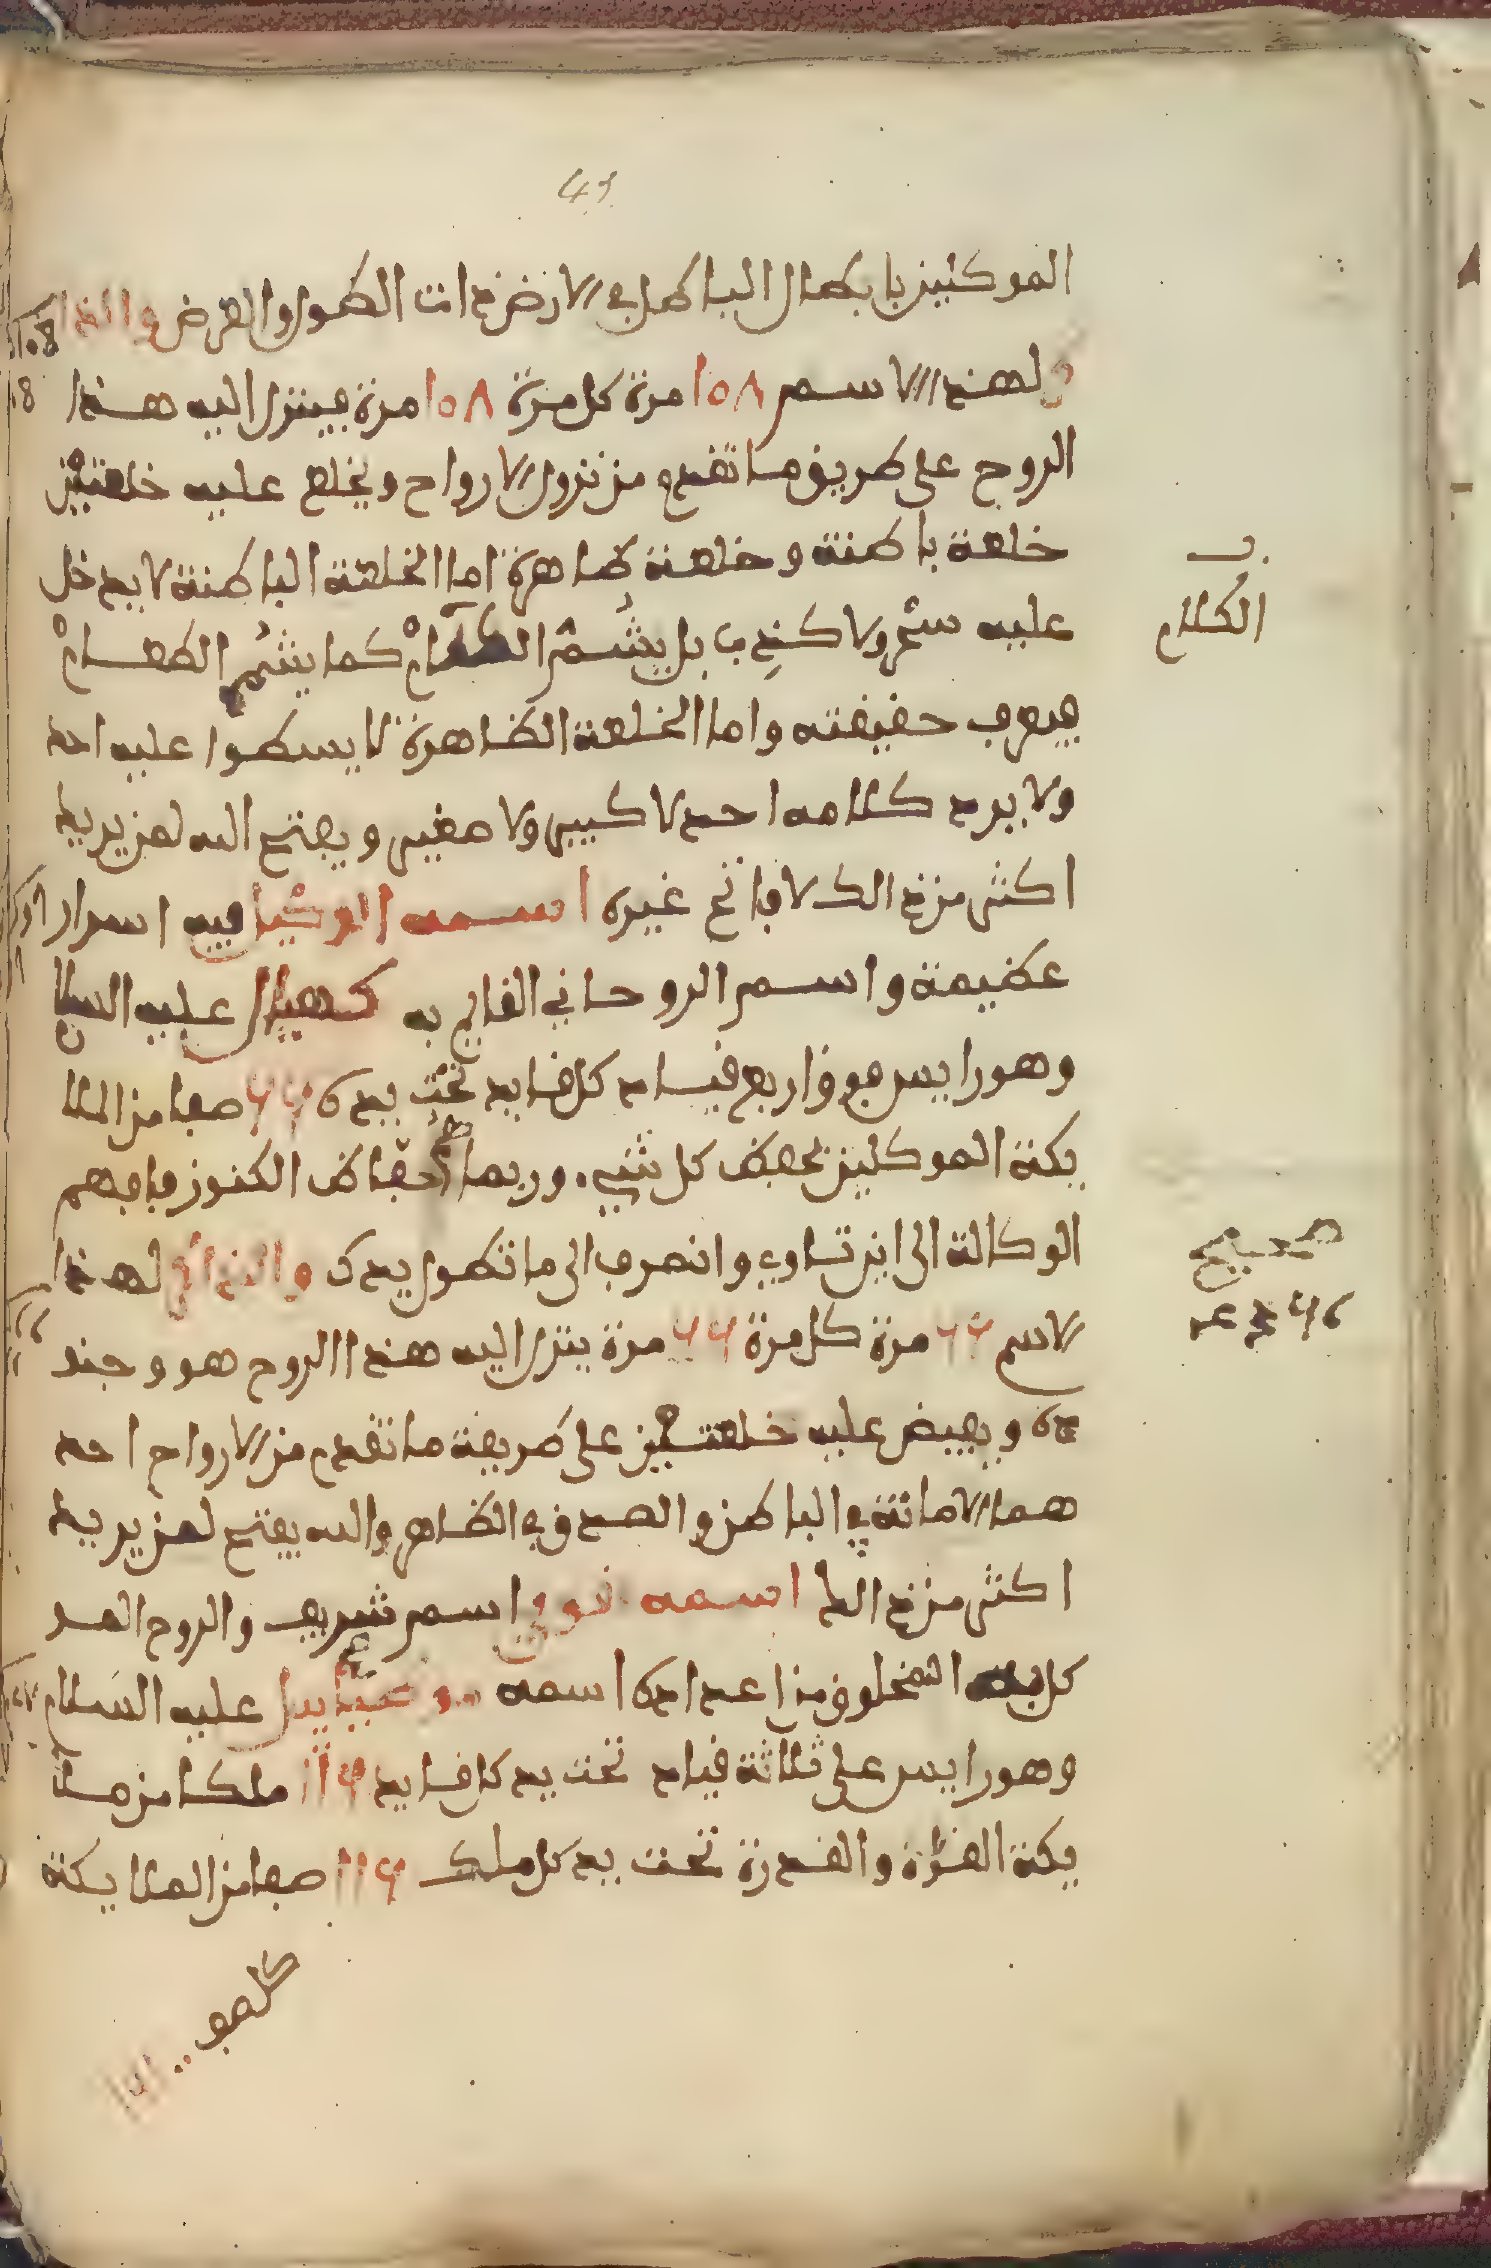 41
الموكلين بابطال الباطل في الارض ذات الطول والعرض والذا
لهذا الاسم ١٥٨ مرة كل مرة ١٥٨ مرة فينزل اليه هذا
الروح على طريق ما تقدم من نزول الارواح ويخلع عليه خلعتين
خلعة باطنة وخلعة ظاهرة اما الخلعة الباطنة لا يدخل
عليه ولا كذب بل يشم الكلام كما يشم الطعام
ب
الكلام
فيعرف حقيقته واما الخلعة الظاهرة لا يسطوا عليه احد
ولا يرد كلامه احد لا كبير ولا صغير ويفتح الله لمن يريد
اكثر من ذالك لا فاتح غيره اسمه الوكيل فيه اسرار
عظيمة واسم الروحاني القايم به كهيال عليه السلا
وهو رايس فوق اربع قياد كل قايد تحت يده ٦٦ صفا من الملا
يكة الموكلين بحفظ كل شيء وربما حفاظ الكنوز فافهم
الوكالة الى اين تساوي وانصرف الى ما تطول يدك والذاكر لهذا
صحيح
٦٦ عد
الاسم ٦٦ مرة كل مرة ٦٦ مرة ينزل اليه هذا الروح هو وجند
ده ويفيض عليه خلعتين على طريقة ما تقدم من الارواح احد
هما الامانة في الباطن والصدق في الظاهر والله يفتح لمن يريد
اكثر من ذالك اسمه قوي اسم شريف والروح المو
كل به المخلوق من اعداده اسمه عليه السلام
وهو رايس على ثلاثة قياد تحت يد كل قايد ١١٦ ملكا من ملا
يكة القوة والقدرة تحت يد كل ملك ١١٦ صفا من الملايكة
كل صف